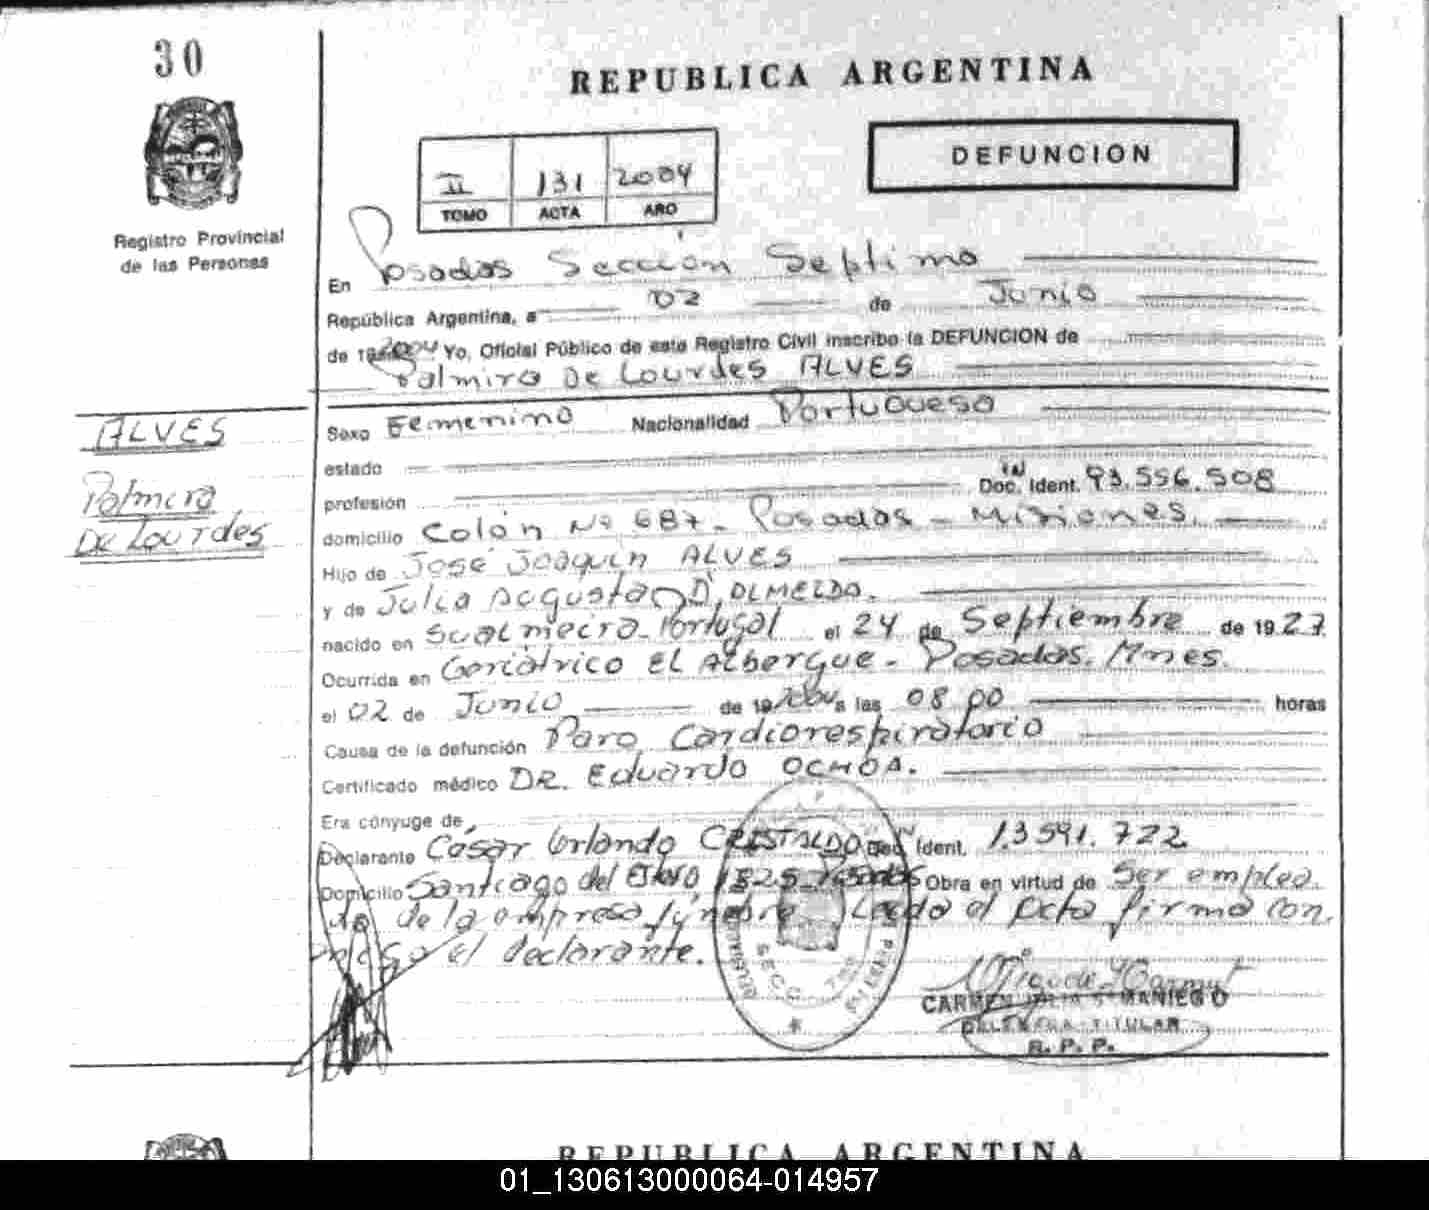 30
REPUBLICA ARGENTINA
DEFUNCION
II 131 2004
TOMO ACTA AÑO
Registro Provincial
de las Personas
En Posadas Sección Septima
República Argentina, a 02 de Junio
de 19 2004 Yo, Oficial Público de este Registro Civil inscribo la DEFUNCION de
Palmira De Lourdes ALVES
ALVES
Palmira
De Lourdes
Sexo Femenino Nacionalidad Portuguesa
estado
profesión Doc. Ident. 93.556.508
domicilio Colón Nº 687. Posadas - Misiones.
Hijo de José Joaquín ALVES
y de Julia Augusta D'OLMEIDA.
nacido en Portugal el 24 de Septiembre de 1927
Ocurrida en Geriátrico El Albergue. Posadas. Mnes.
el 02 de Junio de 19 2004 a las 08 00 horas
Causa de la defunción Paro Cardiorespiratorio
Certificado médico DR. Eduardo OCHOA.
Era cónyuge de
Declarante César Orlando CRISTALDO Doc. Ident. 13.591.722
Domicilio Santiago del Estero 1325 Posadas Obra en virtud de Ser emplea
do de la empresa fúnebre Leída el acta firma con
migo el declarante.
SECC. 7ma
CARMEN JULIA SAMANIEGO
DELEGADA TITULAR
R. P. P.
REPUBLICA ARGENTINA
01_130613000064-014957